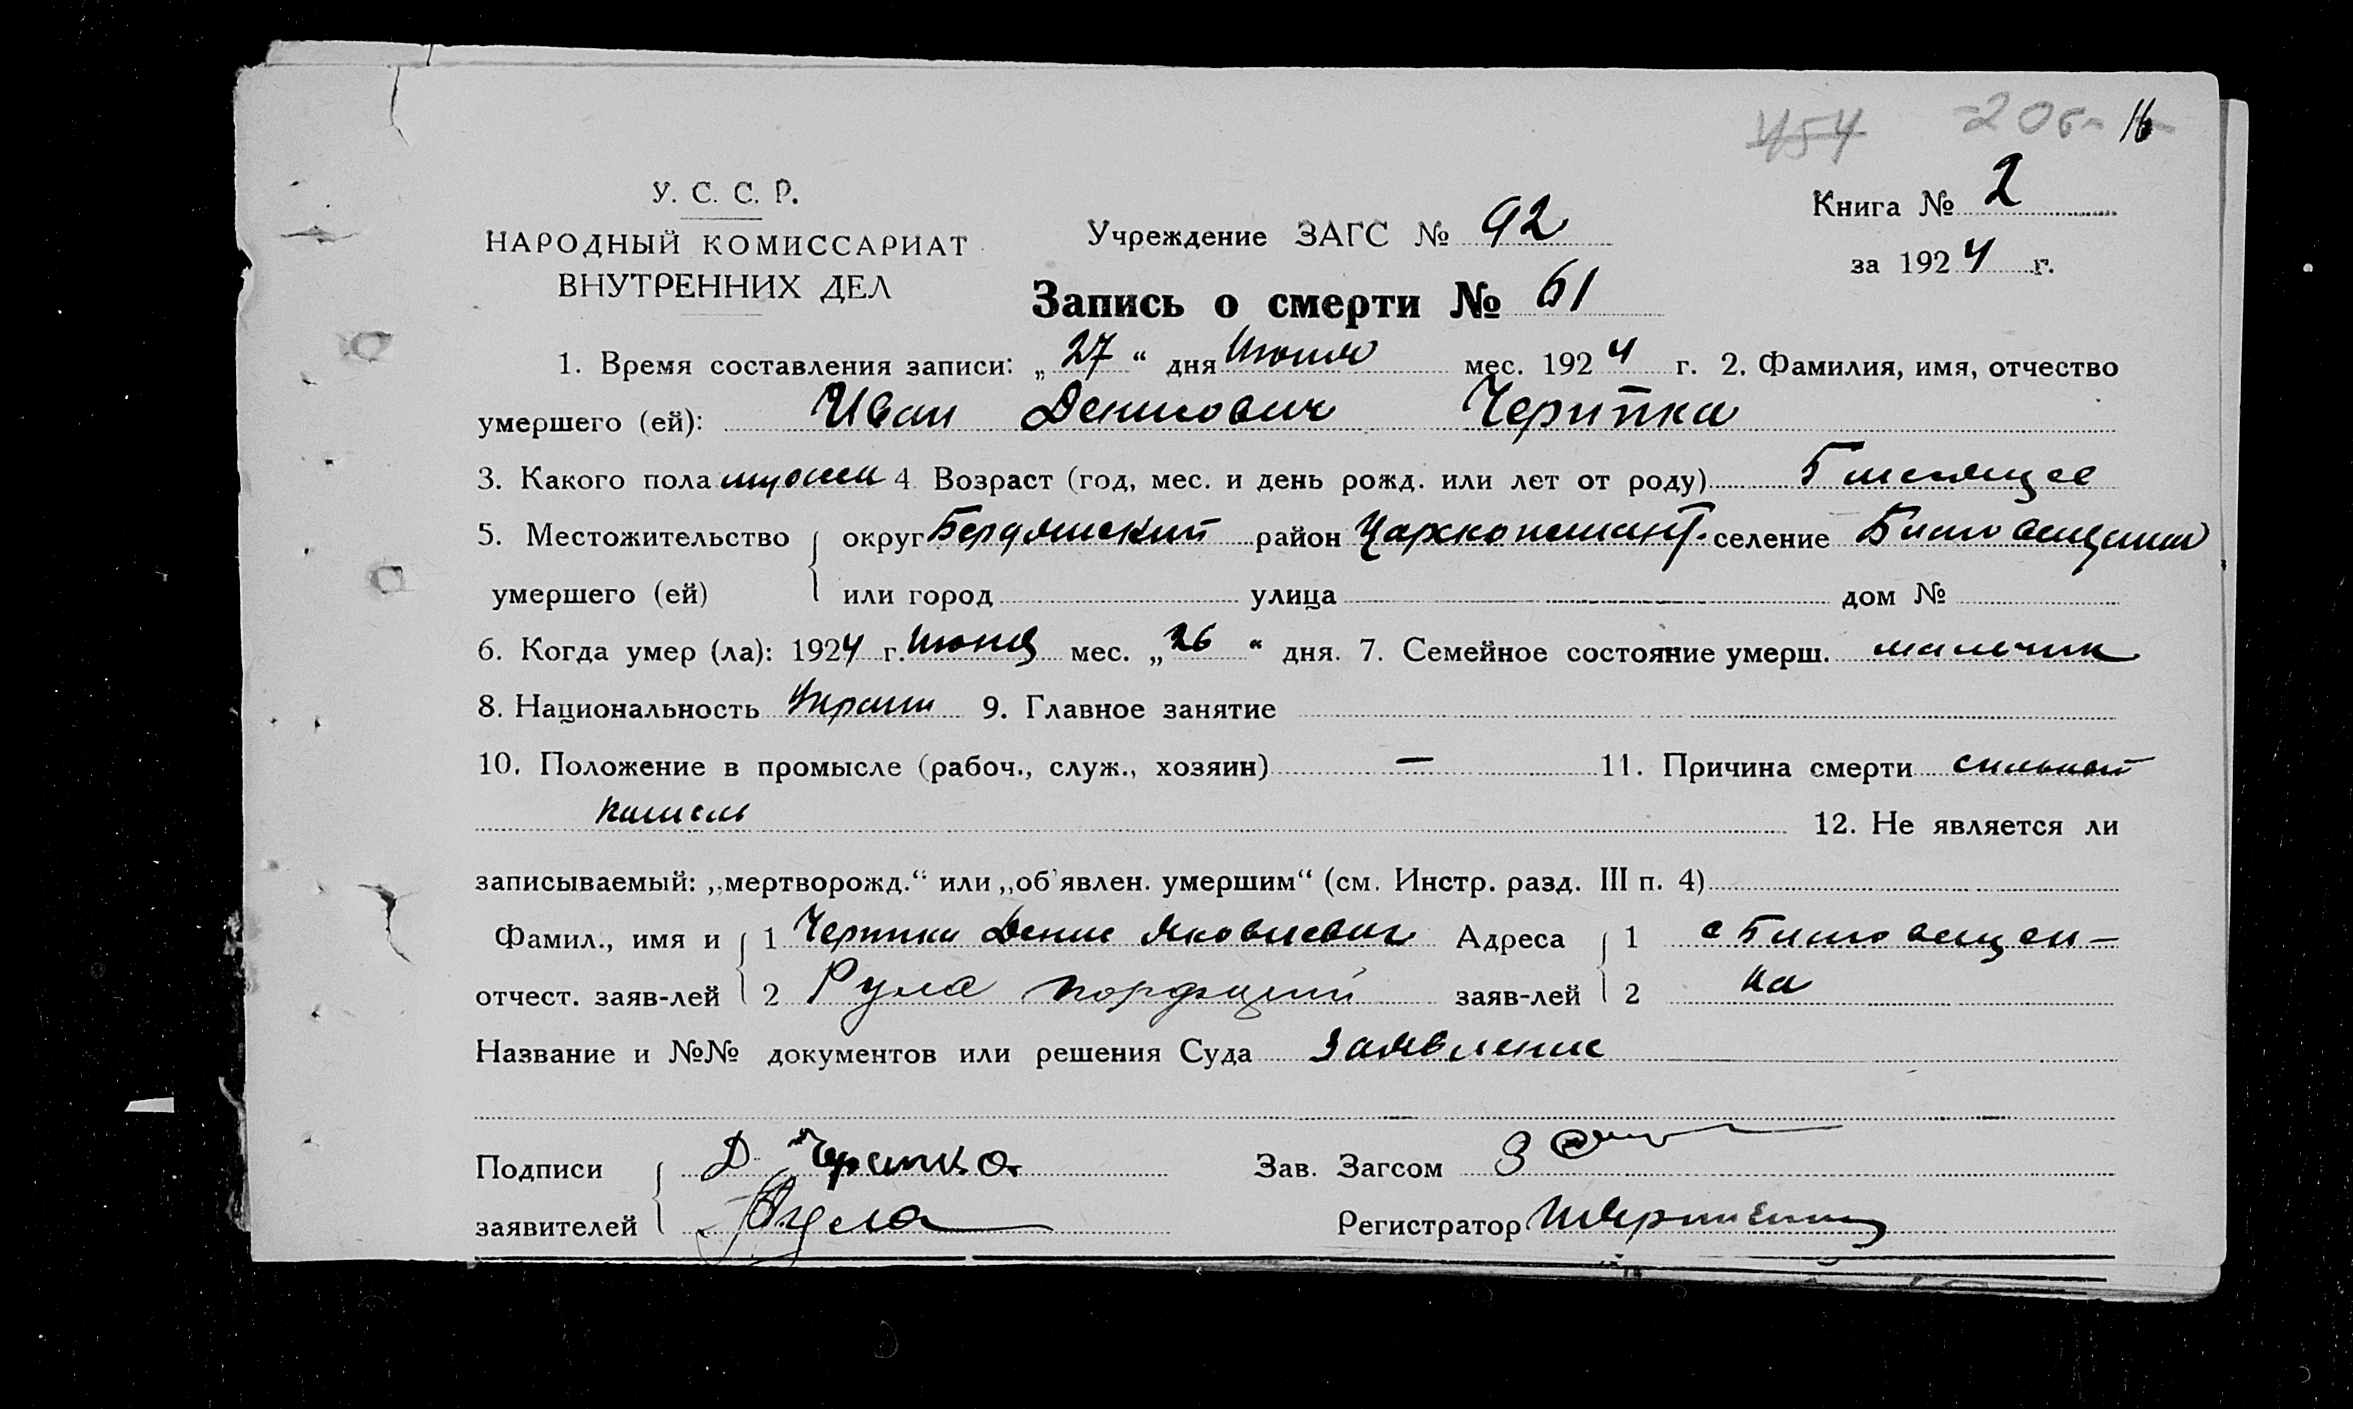 454 206 16
У. С. С. Р.
НАРОДНЫЙ КОМИССАРИАТ
ВНУТРЕННИХ ДЕЛ
Учреждение ЗАГС № 92
Книга № 2
за 1924 г.
Запись о смерти № 61
1. Время составления записи: „27“ дня Июня мес. 1924 г. 2. Фамилия, имя, отчество
умершего (ей): Иван Денисович Черипка
3. Какого пола мужск 4 Возраст (год, мес. и день рожд. или лет от роду)
5. Местожительство округ Бердянский район Цареконстант. селение Благовещенка
умершего (ей) или город улица дом №
6. Когда умер (ла): 1924 г. Июня мес. „26“ дня. 7. Семейное состояние умерш. мальчик
8. Национальность Украин 9. Главное занятие
10. Положение в промысле (рабоч., служ., хозяин) — 11. Причина смерти сильный
кашель
12. Не является ли
записываемый: „мертворожд.“ или „об'явлен. умершим“ (см. Инстр. разд. III п. 4)
Фамил., имя и 1 Черипки Денис Яковлевич Адреса 1 с Благовещен-
отчест. заяв-лей 2 Рула Порфирий заяв-лей 2 ка
Название и №№ документов или решения Суда Заявление
Подписи Д. Черипка Зав. Загсом
заявителей Рула Регистратор